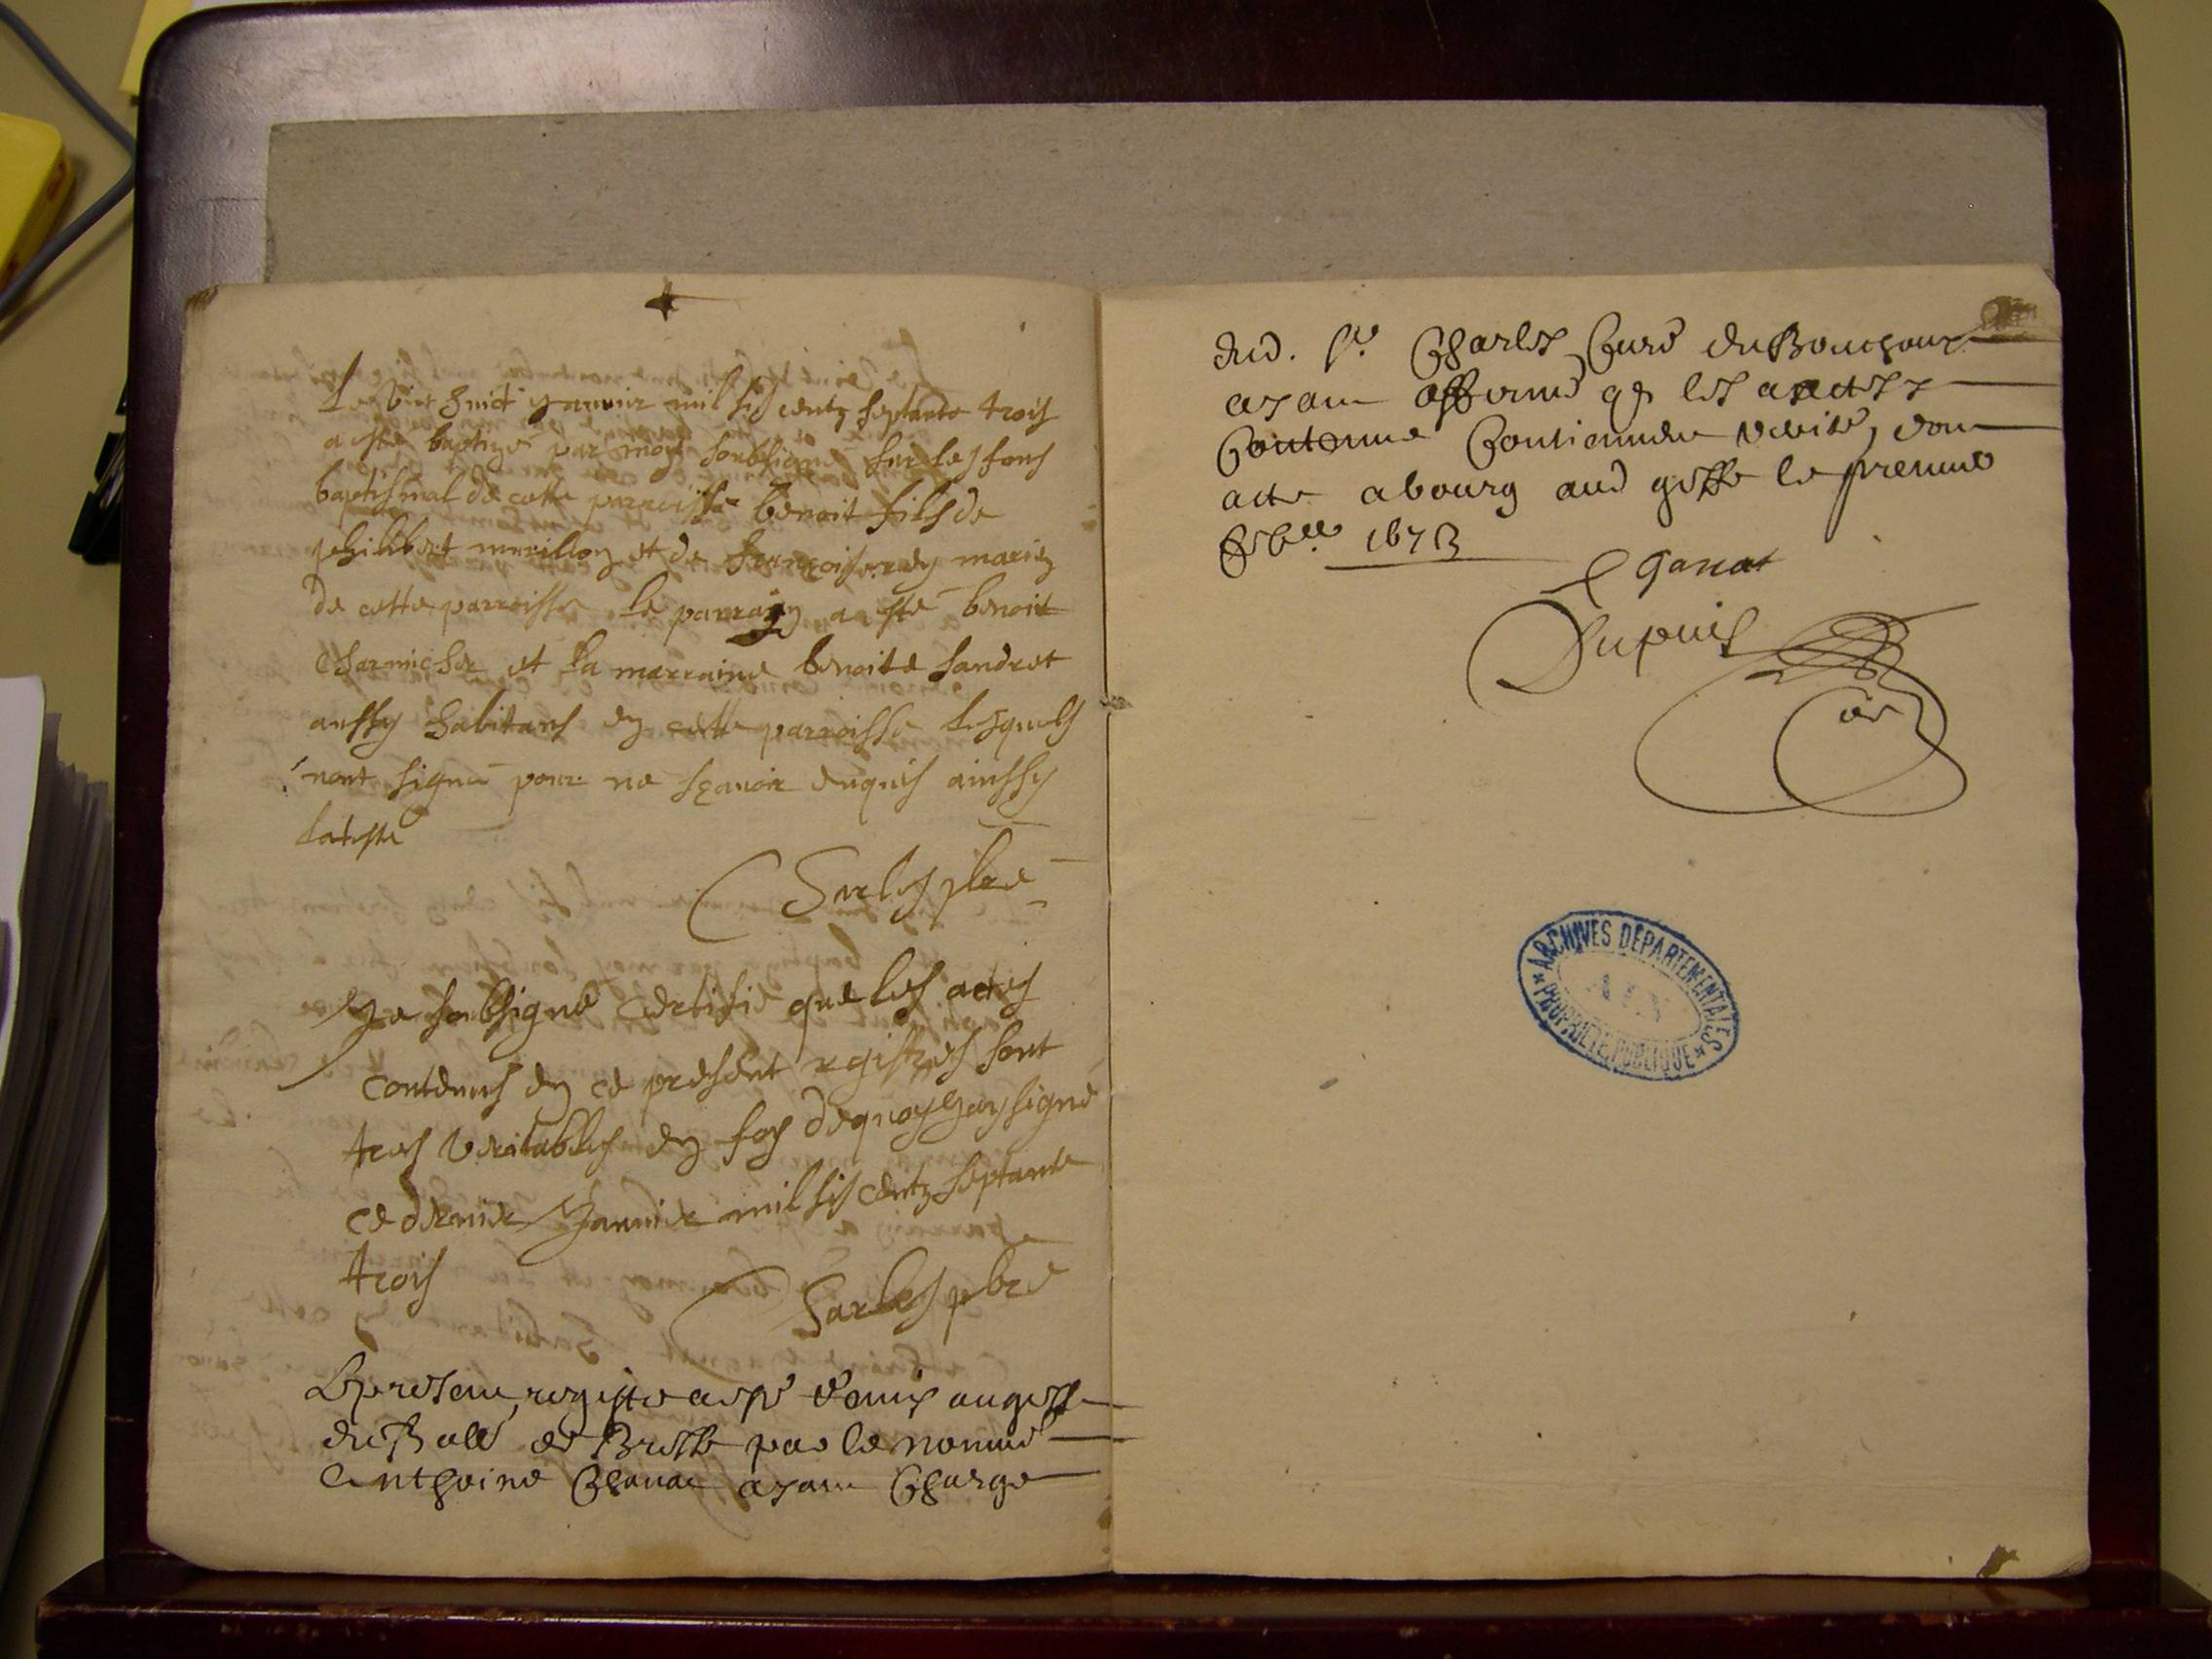 Le vint huict yanvier mil six centz septante trois
a esté baptizé par moy soubsigné sur les fons
baptismal de cette parroisse benoit fils de
philibert morillon et de françoise mariez
de cette parroisse le parrain a esté benoit
Charmicher et la marraine benoite Sandret
aussy habitans en cette parroisse lesquels
nont signé pour ne sçavoir enquis ainssy
latteste
Charles pbre
Je soubsigné certifie que les actes
contenus en ce present registres sont
tres veritables en foy dequoy Jay signé
ce dernier Janvier mil six centz septante
trois
Charles pbre
Le present registre a esté remis au greffe
du Ball. de Bresse par le nommé
Anthoine Chanat ayant Charge
dud. Sr Charles Curé du Bouchoux
ayant affermé q les actes y
Contenue Contiennent verité, dont
acte a bourg aud greffe le premier
febr. 1673
Ganat
Dupuis
ARCHIVES DEPARTEMENTALES
AIN
* PROPRIETE PUBLIQUE *